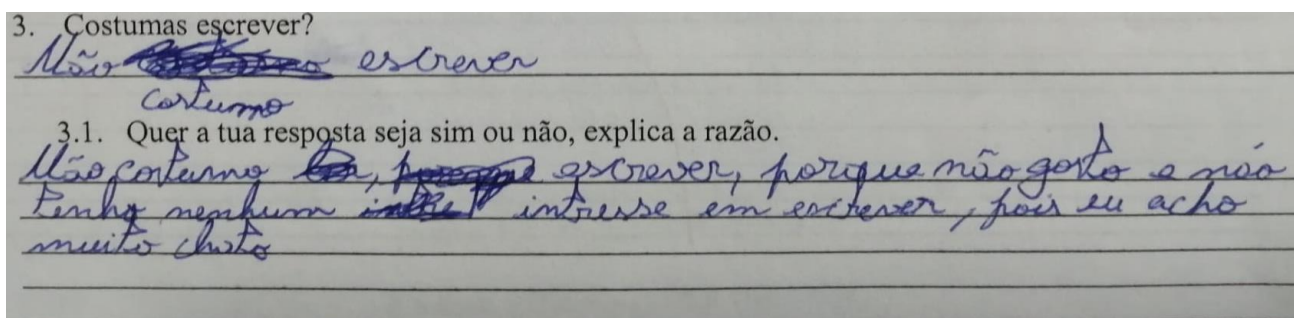 3. Costumas escrever?
Não escrever
costumo
3.1. Quer a tua resposta seja sim ou não, explica a razão.
Não costumo, escrever, porque não gosto e não
tenho nenhum intresse em escrever, pois eu acho
muito chato